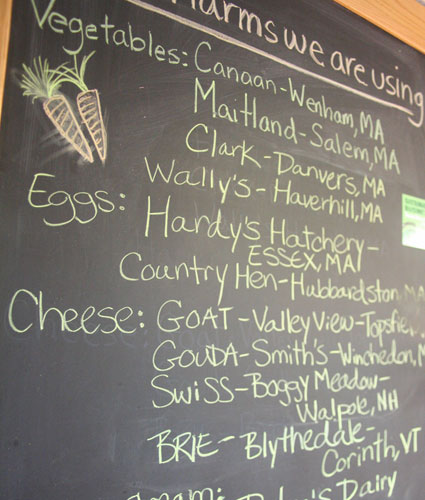 we are using
Vegetables: Canaan-Wenham, MA
Maitland-Salem, MA
Clark-Danvers, MA
Wally's-Haverhill, MA
Eggs: Hardy's Hatchery-
ESSEX, MA
Country Hen-Hubbardston, MA
Cheese: GOAT-Valley View-Topsfie
GOUDA-Smith's-Winchedon, M
SWISS-Boggy Meadow-
Walpole, NH
BRIE-Blythedale-
Corinth, VT
Dairy